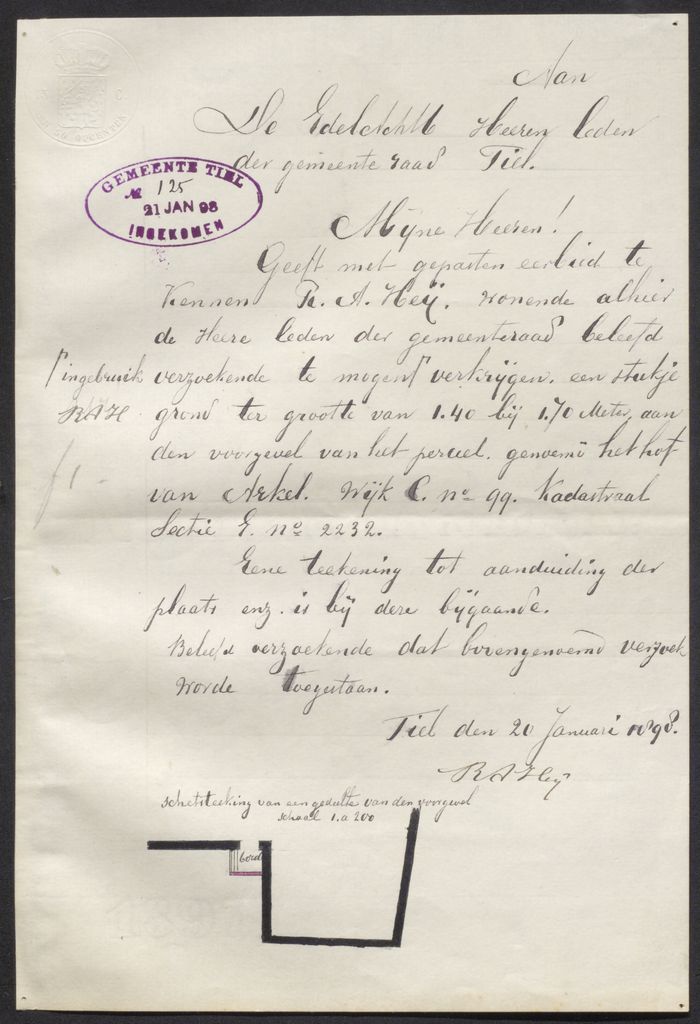 Aan
De Edelachtb Heeren leden
der gemeente raad Tiel.
GEMEENTE TIEL
No 125
21 JAN 98
INGEKOMEN
Mijne Heeren!
Geeft met gepasten eerbied te
Kennen R. A. Heij. wonende alhier
de Heere leden der gemeenteraad beleefd
verzoekende te mogen ⌈ verkrijgen. een stukje
⌈ in gebruik
RAH
grond ter grootte van 1.40 bij 1.70 Meter, aan
den voorgevel van het perceel. genoemd het hof
van Arkel. Wijk C. no 99. Kadastraal
Sectie E. no 2232.
Eene teekening tot aanduiding der
plaats enz. is bij deze bijgaande.
Beleefd verzoekende dat bovengenoemd verzoek
worde toegestaan.
Tiel den 20 Januari 1898.
RAHeij
schetsteeking van een gedeelte van den voorgevel
schaal 1. a 200
bord